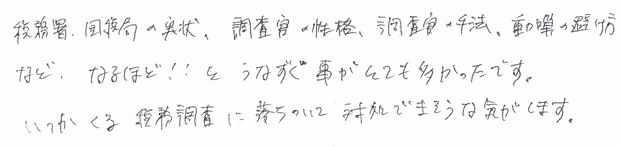 税務署、国税局の実状、調査官の性格、調査官の手法、動揺の避け方
など、なるほど!!とうなずく事がとても多かったです。
いつかくる税務調査に落ちついて対処できそうな気がします。